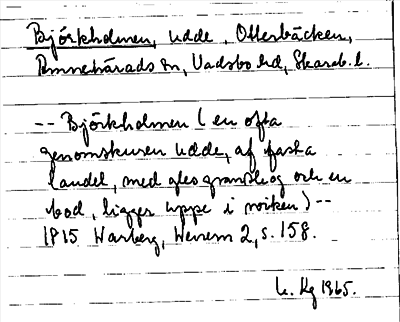 Björkholmen, udde, Otterbäcken,
Amnehärads sn, Vadsbo hd, Skarab. l.
-- Björkholmen (en ofta
genomskuren udde, af fasta
landet, med gles granskog och en
bod, ligger uppe i wiken) --
1815 Warberg, Wenern 2, s. 158.
Kg 1965.